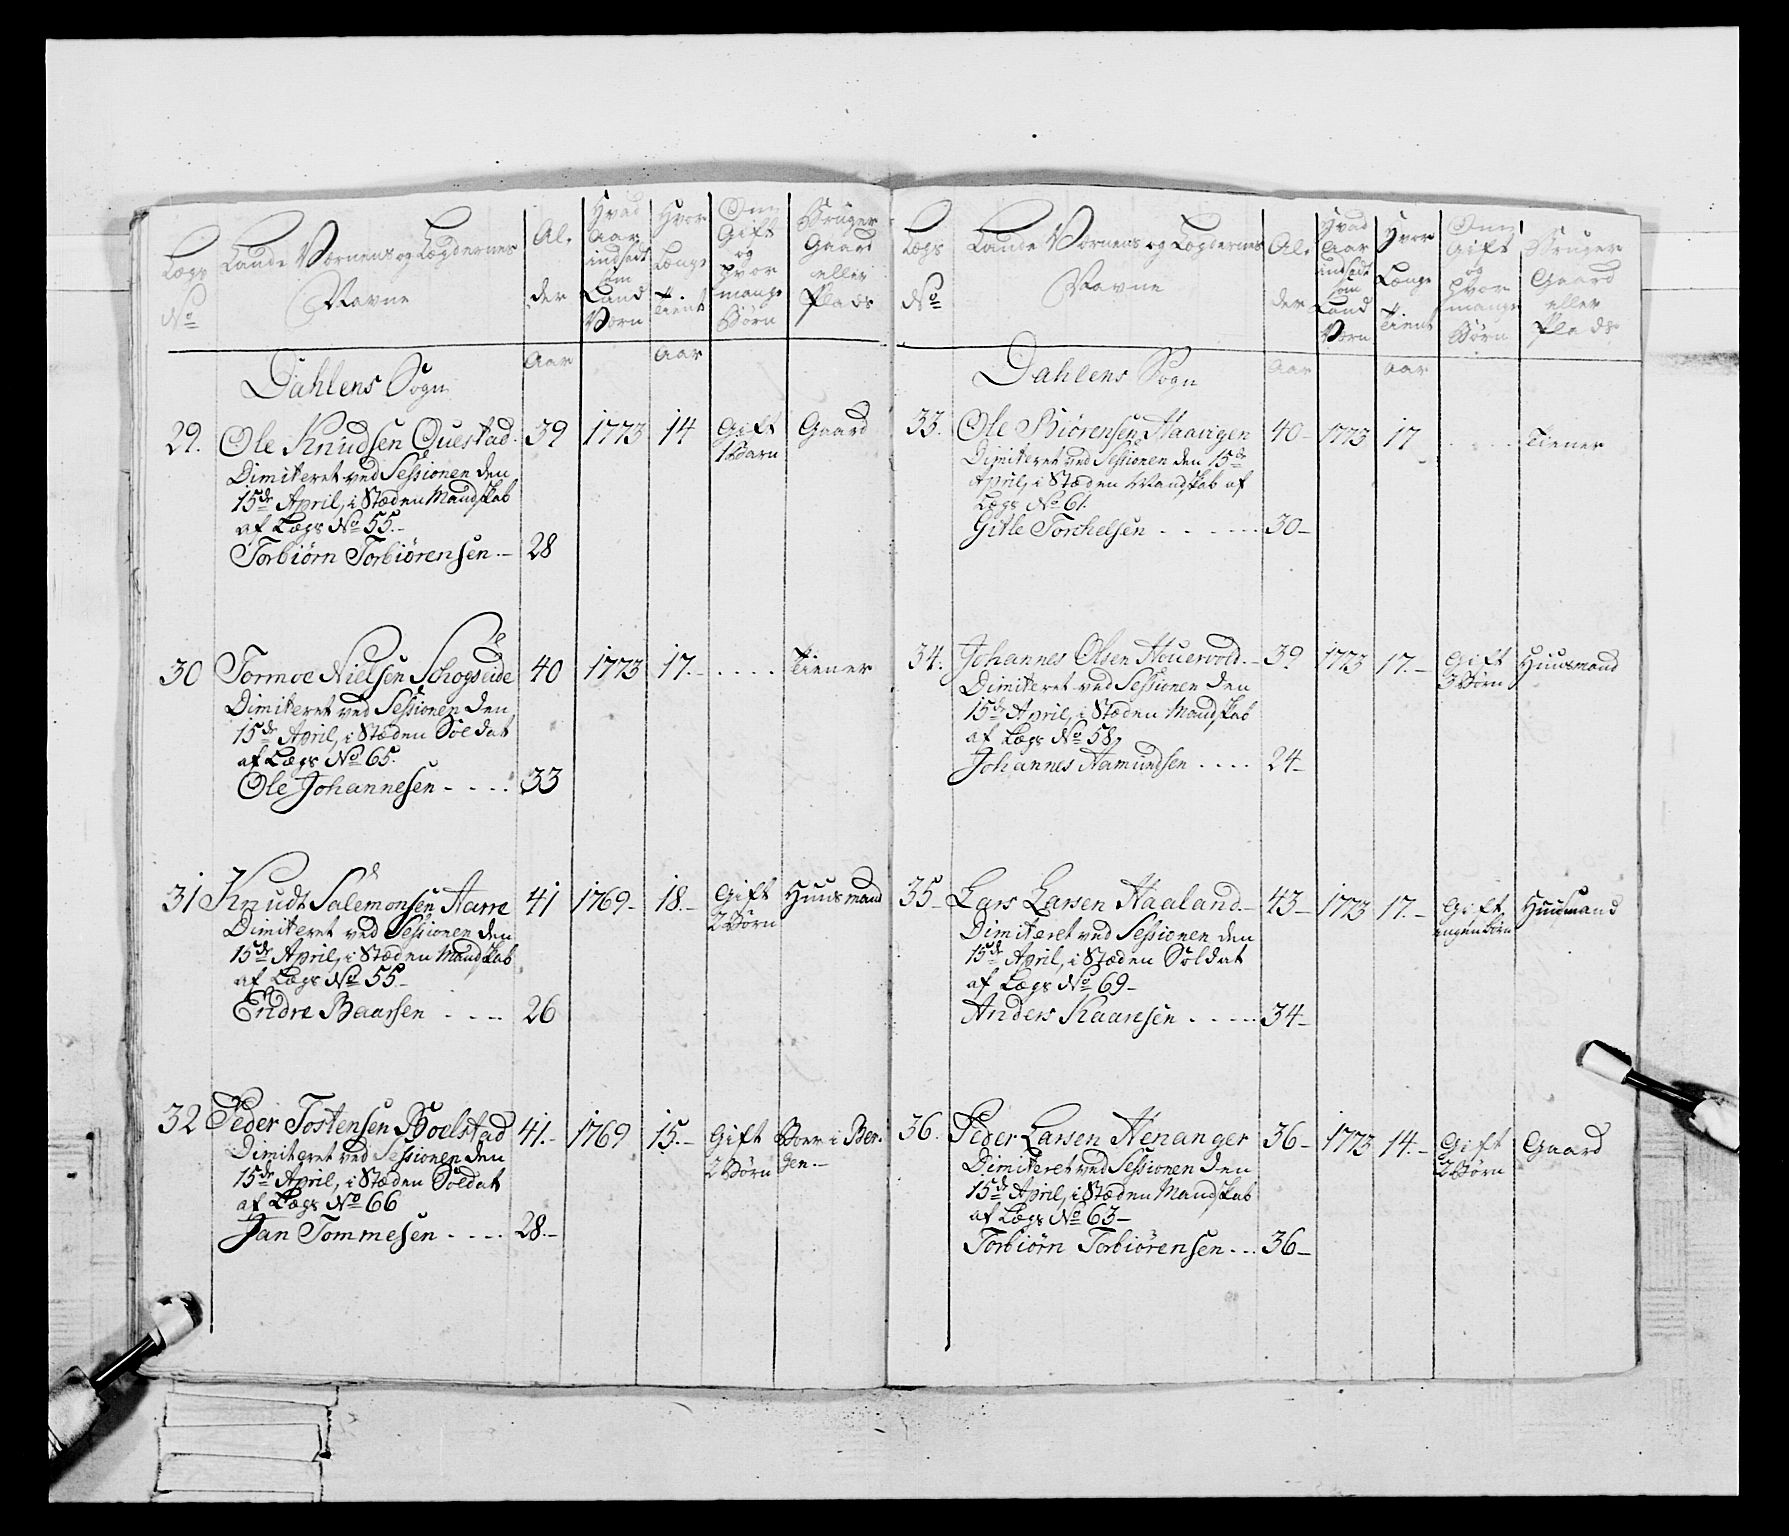 Lægs
No
Lande Værnens og Lægdernes
Navne
Al-
der
Hvad
Aar
indsadt
som
Land
Værn
Hvor
Længe
Tient
Om
Gift
og
hvor
mange
Børn
Bruger
Gaard
eller
Plads
Aar
Aar
Dahlens Sogn
29. Ole Knudsen Questad. 39 1773 14 Gift Gaard
1 Barn
Dimiteret ved Sessionen den
15de April, i Stæden Mandskab
af Lægs No 55.-
Torbiørn Torbiørensen.- 28
30 Tormoe Nielsen Schogseide 40 1773 17.- . . . . Tiener
Dimiteret ved Sessionen den
15de April, i Stæden Soldat
af Lægs No 65.
Ole Johannesen - . . . 33
31 Knudt Salemonsen Aarre 41 1769- 18.- Gift Huusmand
2 Børn
Dimiteret ved Sessionen den
15de April, i Stæden Mandskab
af Lægs No 55.-
Endre Baarsen . . . . 26
32 Peder Tostensen Boelstad 41.- 1769 15.- Gift Boer i Ber-
2 Børn gen.-
Dimiteret ved Sessionen den
15de April, i Stæden Soldat
af Lægs No 66
Jan Tommesen . . . . 28.-
Lægs
No
Lande Værnens og Lægdernes
Navne
Al-
der
Hvad
Aar
indsadt
som
Land
Værn
Hvor
Længe
Tient
Om
Gift
og
hvor
mange
Børn
Bruger
Gaard
eller
Plads
Aar
Aar
Dahlens Sogn
33. Ole Biørensen Haavigen 40- 1773 17 . . . . Tiener
Dimiteret ved Sessionen den 15de
April, i Stæden Mandskab af
Lægs No 61.
Gitle Torchelsen . . . . . 30-
34. Johannes Olsen Houervold.- 39 1773 17.- Gift Huusmand
3 Børn
Dimiteret ved Sessionen den
15de April, i Stæden Mandskab
af Lægs No 58,
Johannes Aamundsen . . . . 24-
35 Lars Larsen Haaland.- 43- 1773 17.- Gift Huusmand
ingen Børn
Dimiteret ved Sessionen den
15de April, i Stæden Soldat
af Lægs No 69-
Anders Kaaresen . . . . 34-
36. Peder Larsen Henanger 36- 1773 14.- Gift Gaard
2 Børn
Dimiteret ved Sessionen den
15de April, i Stæden Mandskab
af Lægs No 63-
Torbiørn Torbiørensen . . . 36-